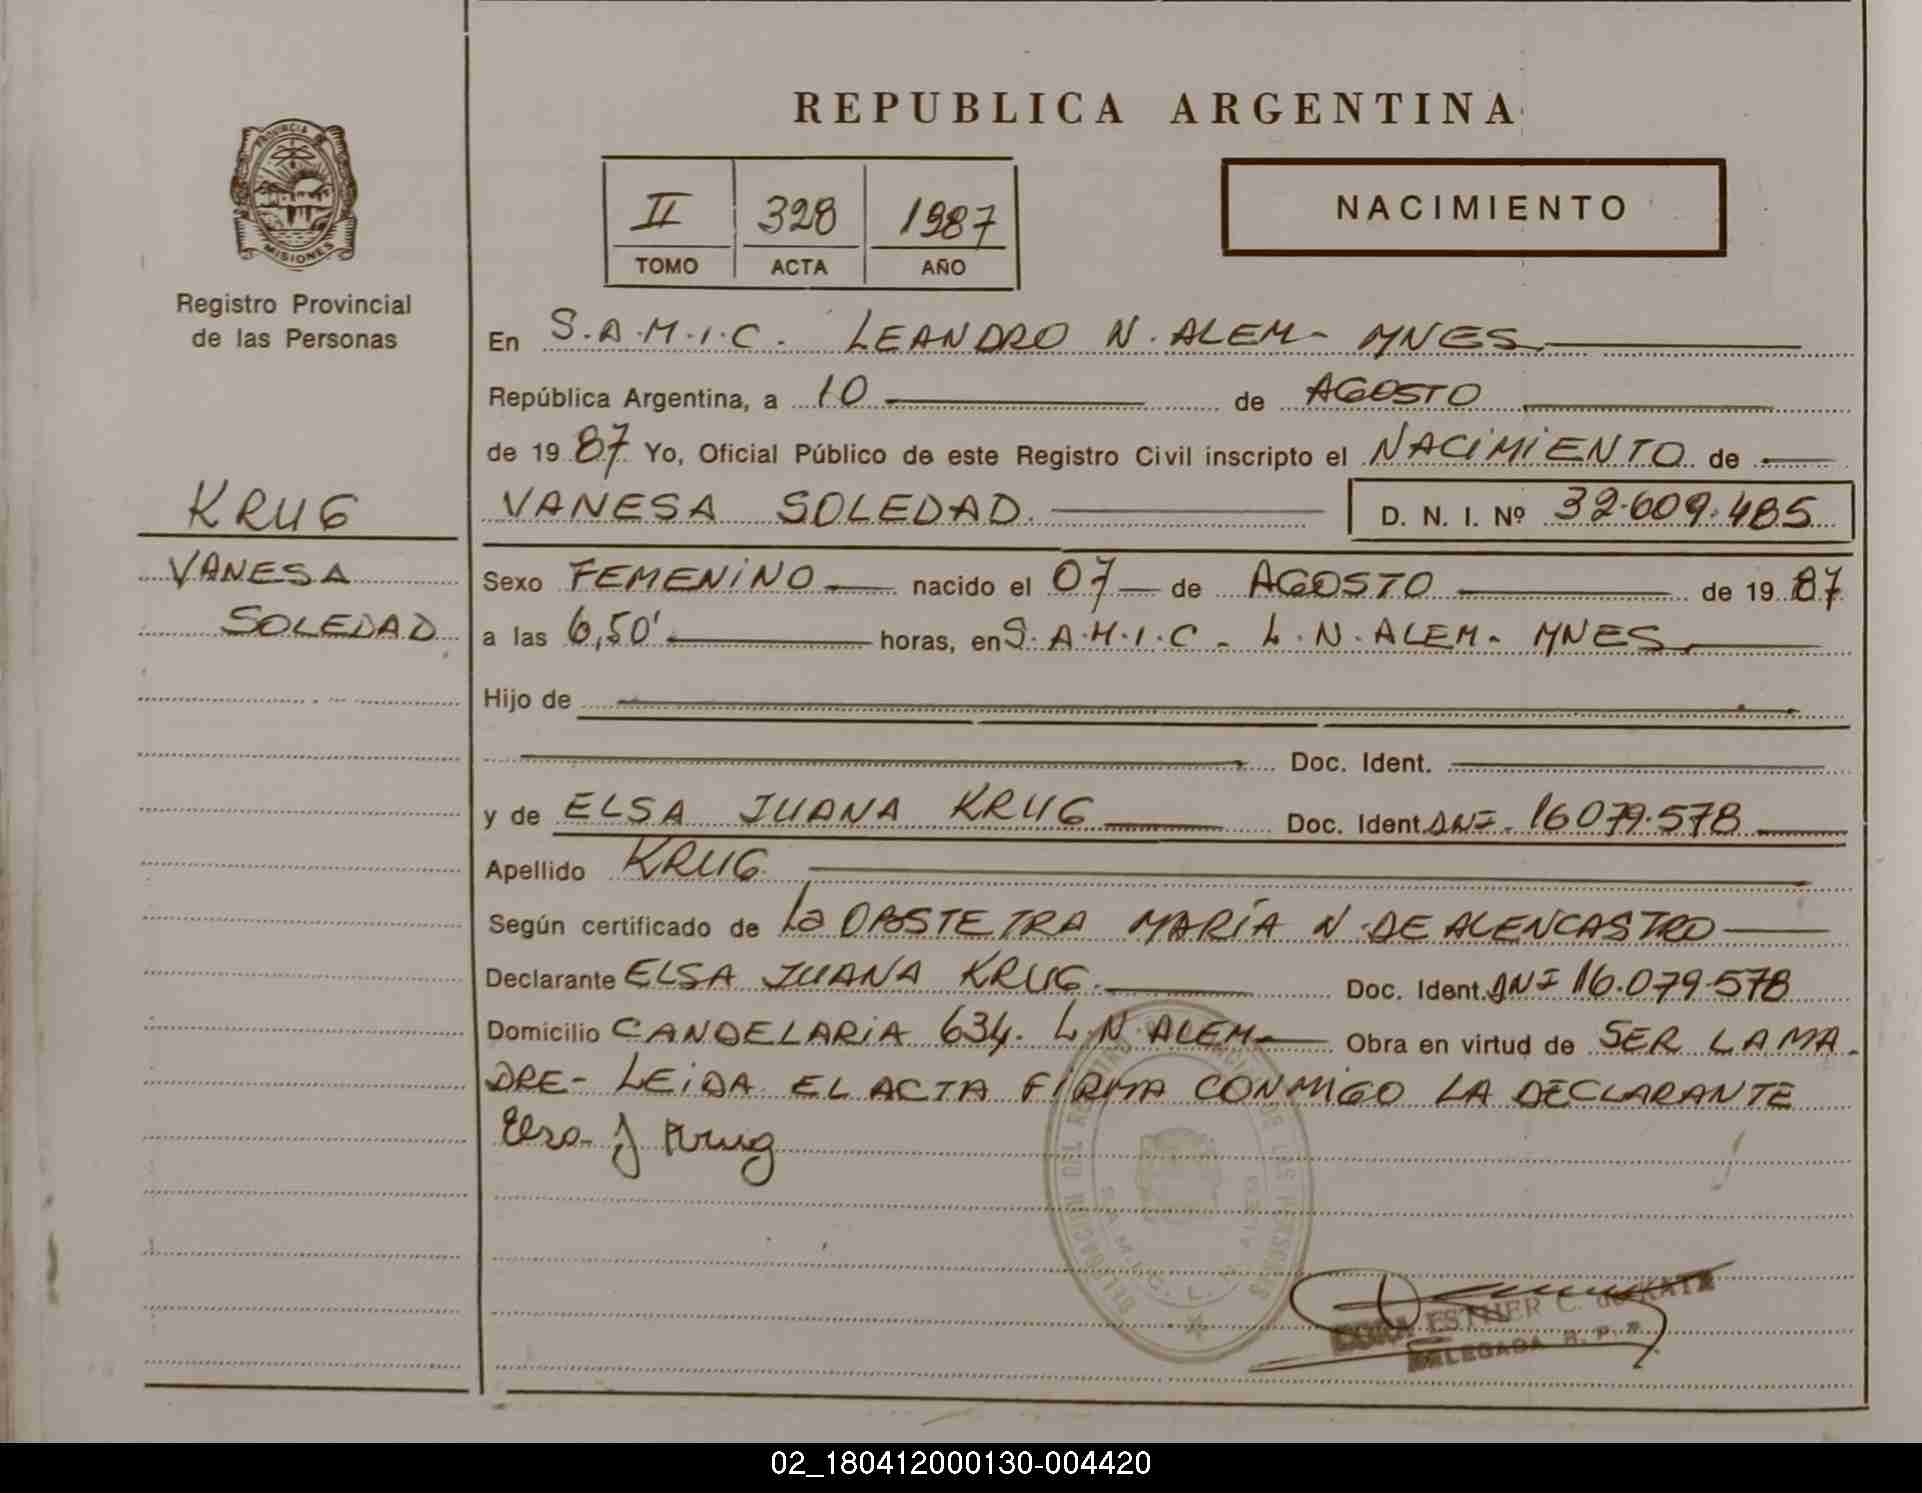 REPUBLICA ARGENTINA
PROVINCIA DE
MISIONES
Registro Provincial
de las Personas
II 328 1987
TOMO ACTA AÑO
NACIMIENTO
En S.A.M.I.C. LEANDRO N. ALEM - MNES
República Argentina, a 10 de AGOSTO
de 1987 Yo, Oficial Público de este Registro Civil inscripto el NACIMIENTO de
VANESA SOLEDAD D. N. I. Nº 32.609.485
KRUG
VANESA
SOLEDAD
Sexo FEMENINO nacido el 07 de AGOSTO de 1987
a las 6,50' horas, en S.A.M.I.C - L.N. ALEM - MNES
Hijo de
Doc. Ident.
y de ELSA JUANA KRUG Doc. Ident. DNI - 16.079.578
Apellido KRUG
Según certificado de la OBSTETRA MARÍA N. DE ALENCASTRO
Declarante ELSA JUANA KRUG. Doc. Ident. DNI 16.079.578
Domicilio CANDELARIA 634. L.N. ALEM - Obra en virtud de SER LA MA-
DRE - LEIDA EL ACTA FIRMA CONMIGO LA DECLARANTE
Elsa J Krug
DELEGACION DEL REGISTRO DE LAS PERSONAS
S.A.M.I.C. L.
ESTHER C. de KATZ
DELEGADA R. P. P.
02_180412000130-004420